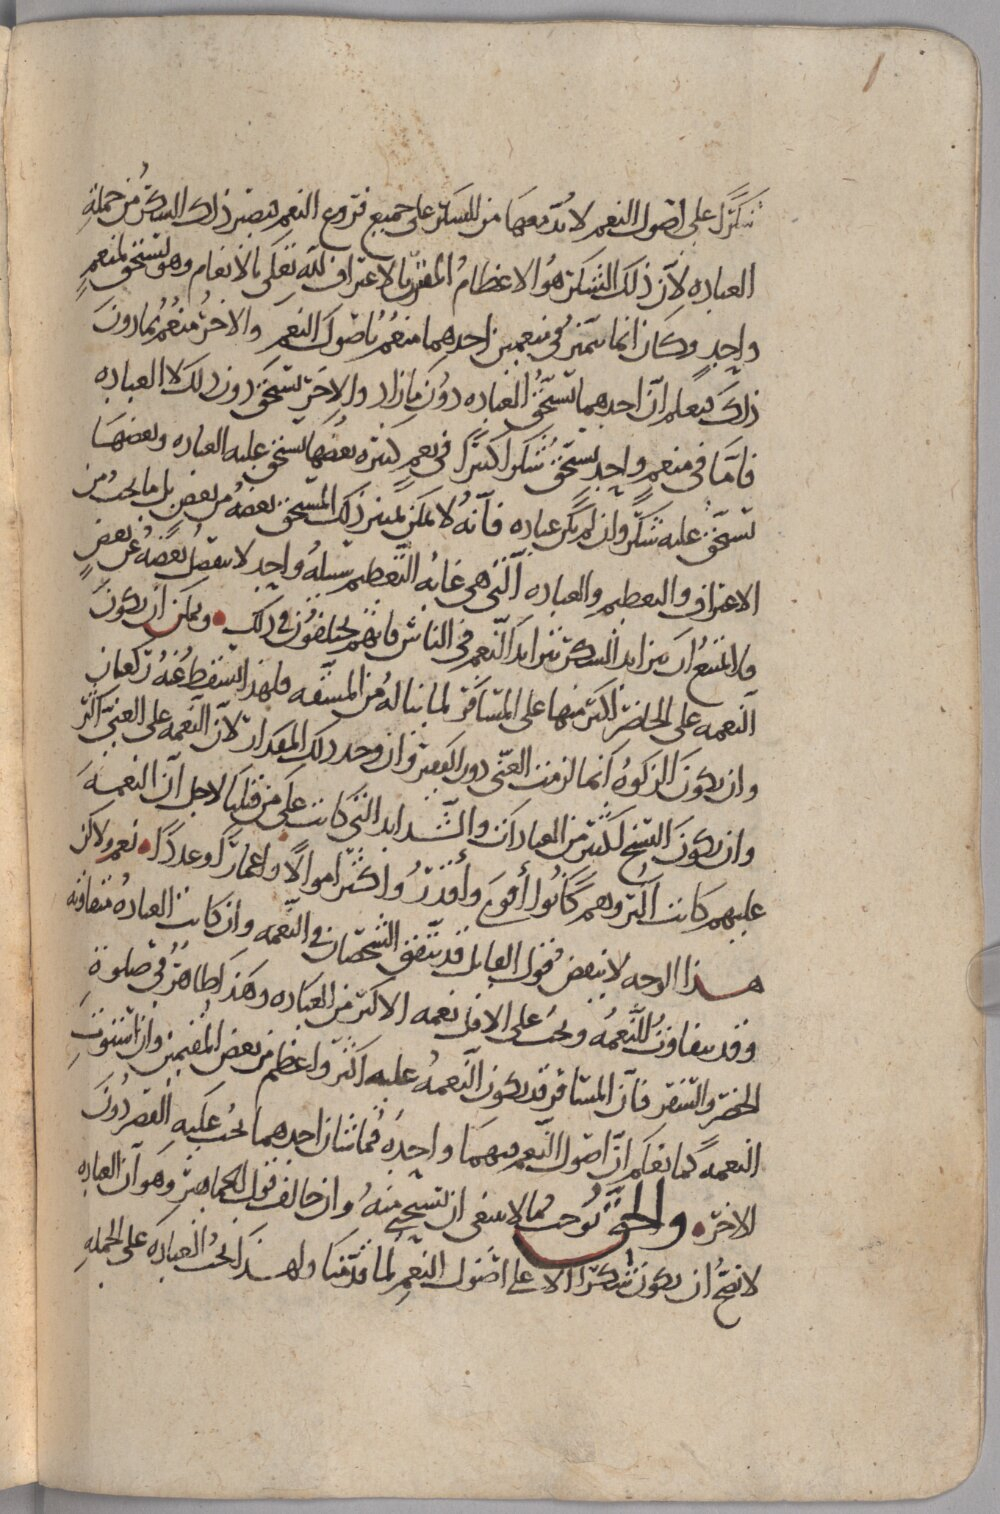 شكرًا على اصول النعم لا بُدّ معها من الشكر على جميع فروع النعم فيصير ذلك الشكرُ من جملة
العباده لأن ذلك الشكر هو الاعظامُ المقترن بالاعتراف لله تعالى بالانعام وهو يستحق لمنعمٍ
واحدٍ وكان انما يتميز في منعمين احدهما منعمُ باصول النعم والاخرُ منعمُ بما دون
ذلك فيعلم أن احدهما يستحقُّ العباده دون ما زاد والاخر يستحق دون ذلك لا العباده
فامّا في منعمٍ واحدٍ يستحقُّ شكرا كثيرًا في نعمٍ كثيره بعضها يستحق عليه العباده وبعضها
يستحق عليه شكرٌ وان لم يكن عباده فأنهُ لا يمكن تميز ذلك المستحق بعضهُ من بعض بل ما يجب من
الاعتراف والتعظيم والعباده التي هي غايه التعظيم سبيلهُ واحد لا ينفصلُ بعضهُ عن بعضٍ
ولا يمتنعُ ان يتزايد الشكر بتزايد النعم في الناس فانهم يختلفون في ذلك ويمكن ان يكونَ
النعمه على الحاضر اكثر منها على المسافر لما يناله من المشقه فلهذا سقط عنهُ ركعتان
وان يكونَ الزكوهُ انما لزمت الغنى دون الفقير وان وجد ذلك المقدار لأن النعمه على الغنيّ اكثر
وان يكونَ النسخ لكثير من العبادات والشدايد التي كانت على من قبلنا لاجل أن النعمةَ
عليهم كانت اكثر وهم كانوا أقوى وأقدرُ واكثر اموالًا واعمارًا وعددًا نعم ولاكن
هذا الوجه لا ينقض قول القايل قد يتفق الشخصان في النعمه وان كانت العبادهُ متفاوته
وقد يتفاوتُ النعمهُ ويجب على الاقل نعمه الاكثر من العباده وهذا ظاهرٌ في صلوة
الحضر والسفر فأن المسافر قد يكون النعمهُ عليه اكثر واعظم من بعض المقيمين وان استوت
النعمه كما نعلم أنّ اصول النعم فيهما واحدهٌ فما شان احدهما يجب عليهِ القصر دونَ
الاخر والحقّ يُوجب لما لا ينبغى ان يستحيى منهُ وان خالف قول الجماهير وهو أن العباده
لا يصحُّ ان يكون شكرًا الا على اصول النعمِ لما قدّمنا ولهذا يجبُ العباده على الجمله